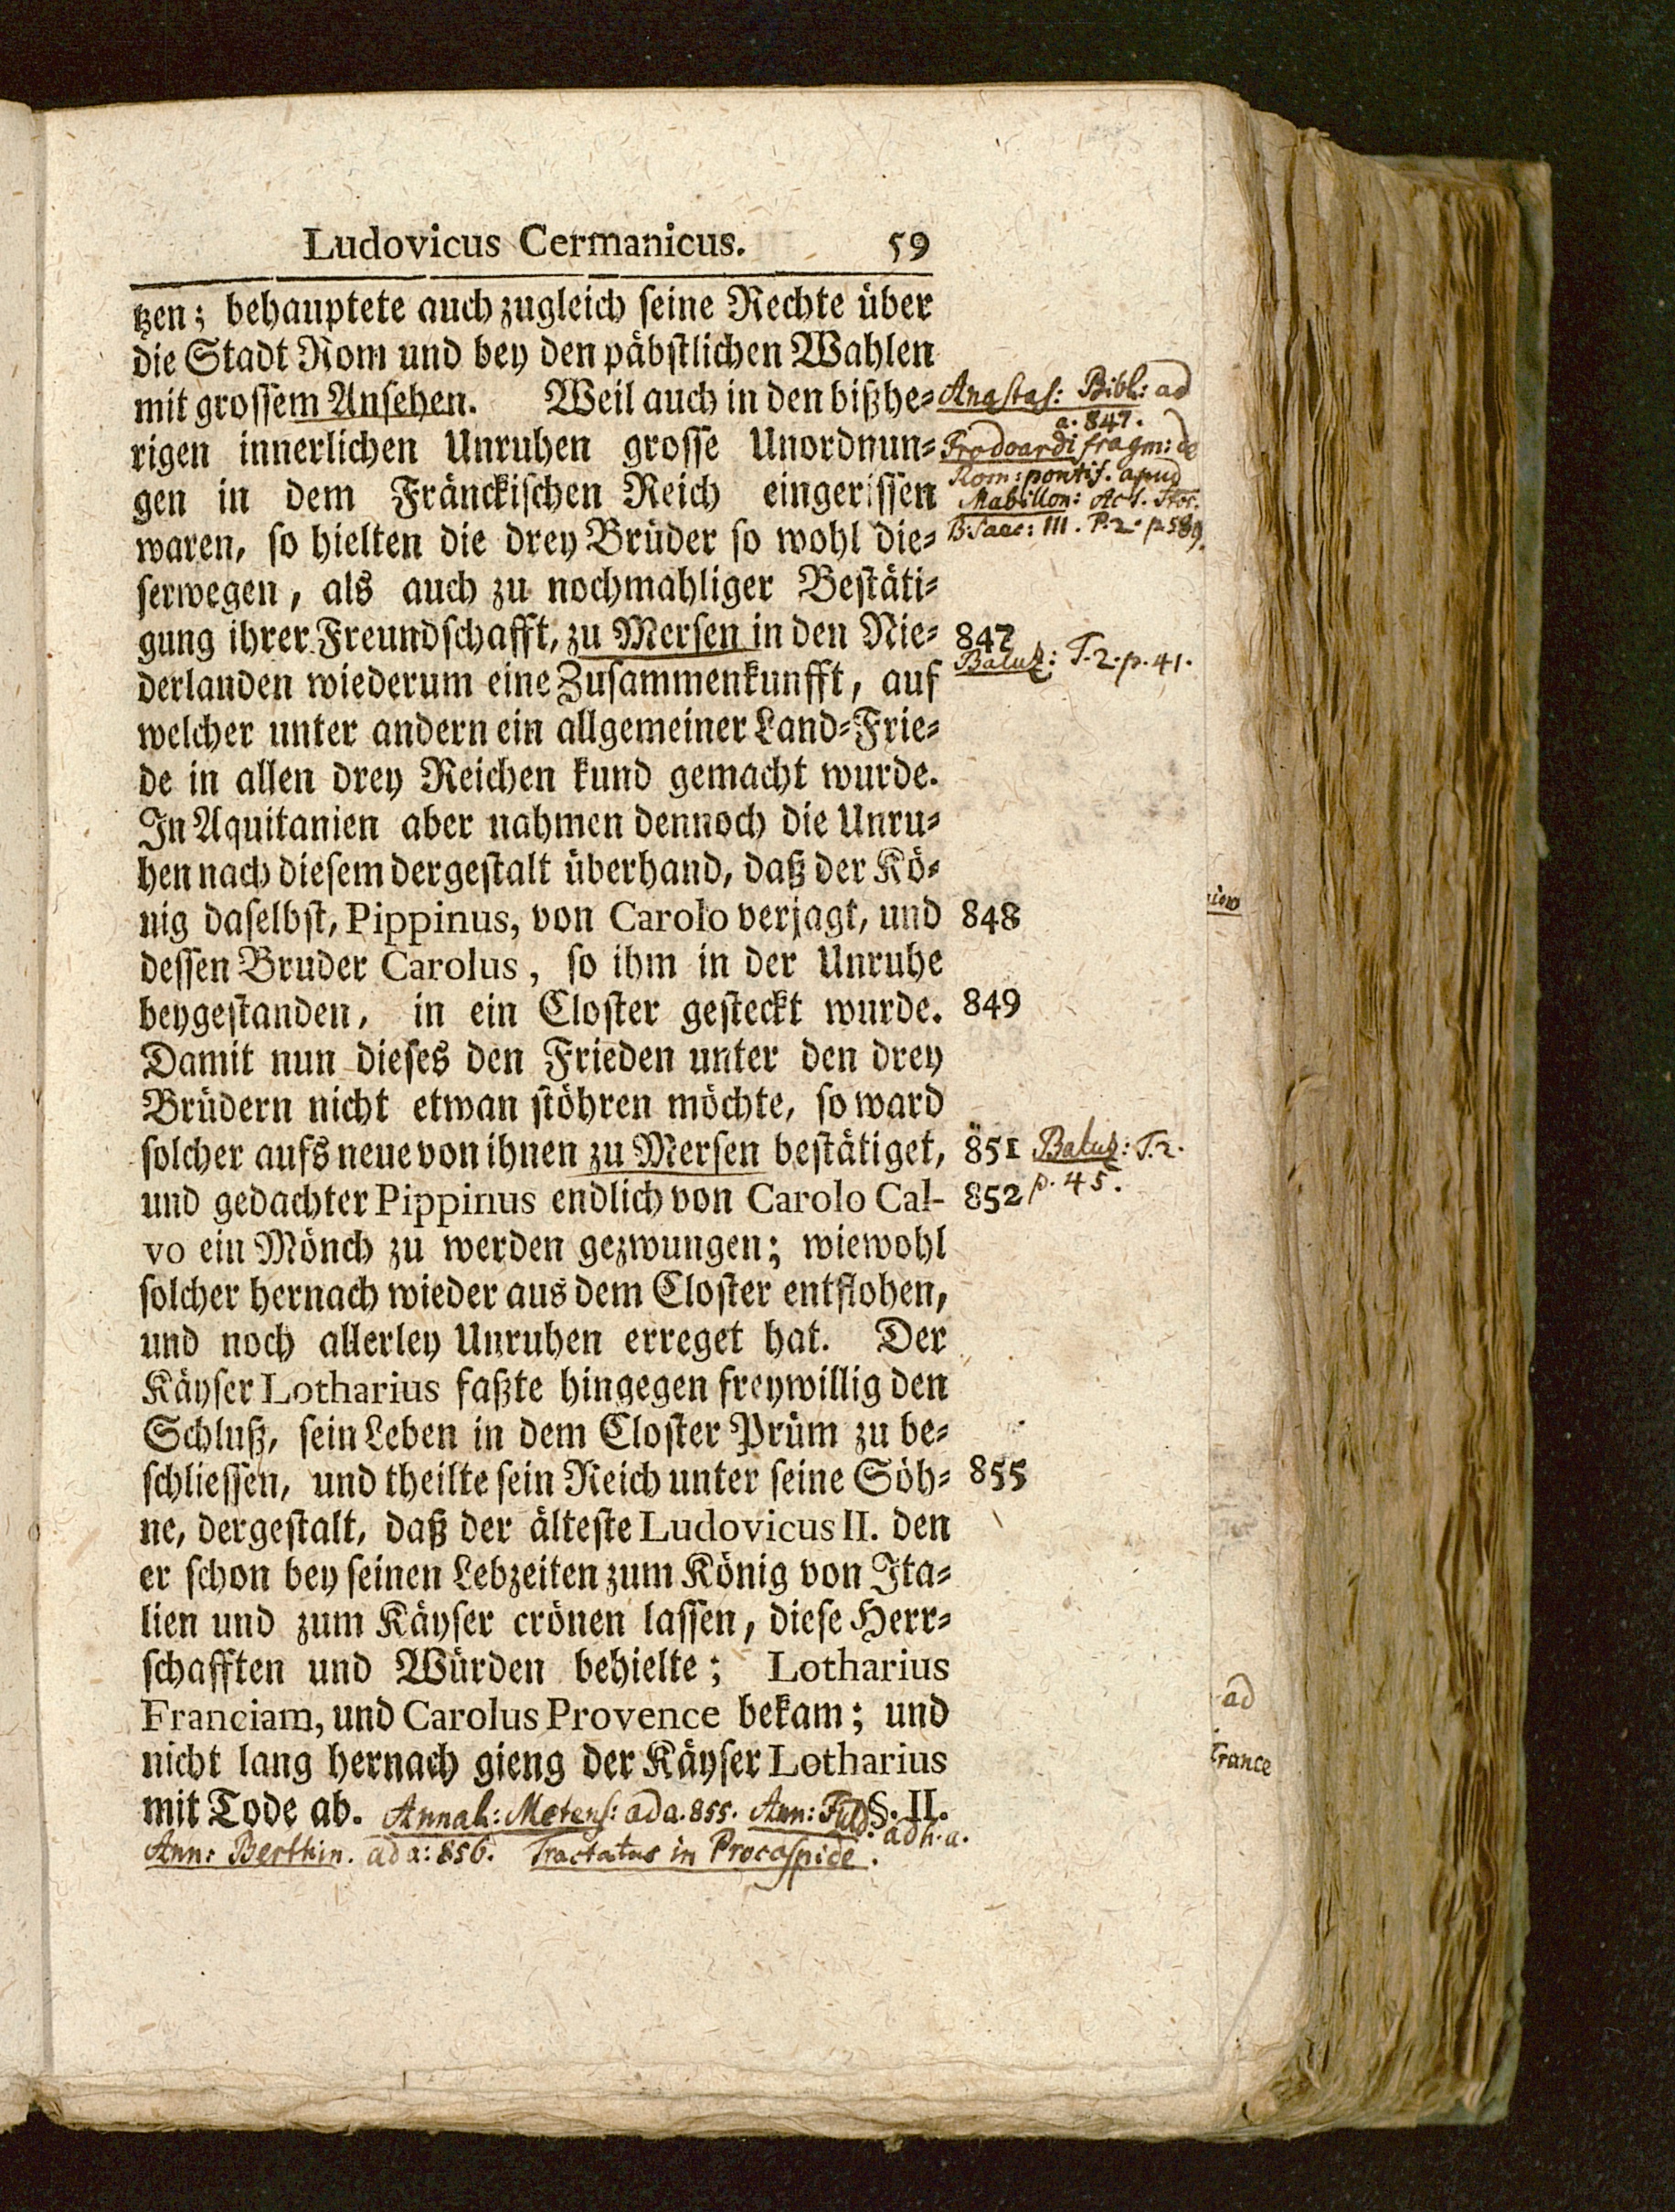 Ludovicus Cermanicus. 59
tzen; behauptete auch zugleich seine Rechte über
die Stadt Rom und bey den päbstlichen Wahlen
mit grossem Ansehen. Weil auch in den bißhe-
Anastas: Bibl: ad
a. 847.
rigen innerlichen Unruhen grosse Unordnun-
Frodoardi fragm: de
gen in dem Fränckischen Reich eingerissen
Rom: pontif. apud
Mabillon: Act.
waren, so hielten die drey Brüder so wohl die-
B. Saec: III. P. 2. p. 589.
serwegen, als auch zu nochmahliger Bestäti-
gung ihrer Freundschafft, zu Mersen in den Nie- 847
Baluz: T. 2. p. 41.
derlanden wiederum eine Zusammenkunfft, auf
welcher unter andern ein allgemeiner Land-Frie-
de in allen drey Reichen kund gemacht wurde.
In Aquitanien aber nahmen dennoch die Unru-
hen nach diesem dergestalt überhand, daß der Kö-
nig daselbst, Pippinus, von Carolo verjagt, und 848
dessen Bruder Carolus, so ihm in der Unruhe
beygestanden, in ein Closter gesteckt wurde. 849
Damit nun dieses den Frieden unter den drey
Brüdern nicht etwan stöhren möchte, so ward
solcher aufs neue von ihnen zu Mersen bestätiget, 851 Baluz: T. 2.
und gedachter Pippinus endlich von Carolo Cal- 852 p. 45.
vo ein Mönch zu werden gezwungen; wiewohl
solcher hernach wieder aus dem Closter entflohen,
und noch allerley Unruhen erreget hat. Der
Käyser Lotharius faßte hingegen freywillig den
Schluß, sein Leben in dem Closter Prüm zu be-
schliessen, und theilte sein Reich unter seine Söh- 855
ne, dergestalt, daß der älteste Ludovicus II. den
er schon bey seinen Lebzeiten zum König von Ita-
lien und zum Käyser crönen lassen, diese Herr-
schafften und Würden behielte; Lotharius
Franciam, und Carolus Provence bekam; und
ad
nicht lang hernach gieng der Käyser Lotharius
france
mit Tode ab. Annal: Metens: ad a. 855. Ann: Fuld. §. II.
ad h. a.
Ann: Berthin. ad a: 856. Tractatus in Procaspide.